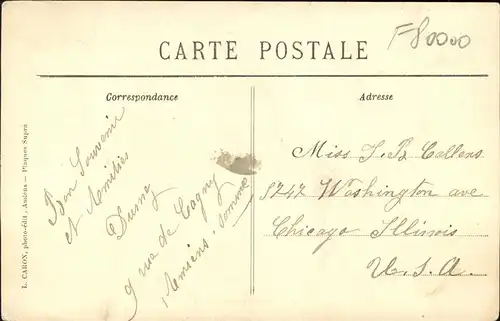 CARTE POSTALE
F80000
Correspondance
Adresse
Bon Souvenir
et Amitiés
9 rue de Cagny
Amiens. Somme
Miss J. B. Callens
5747 Washington ave
Chicago Illinois
U. S. A.
L. CARON, photo-édit., Amiens — Plaques Supra